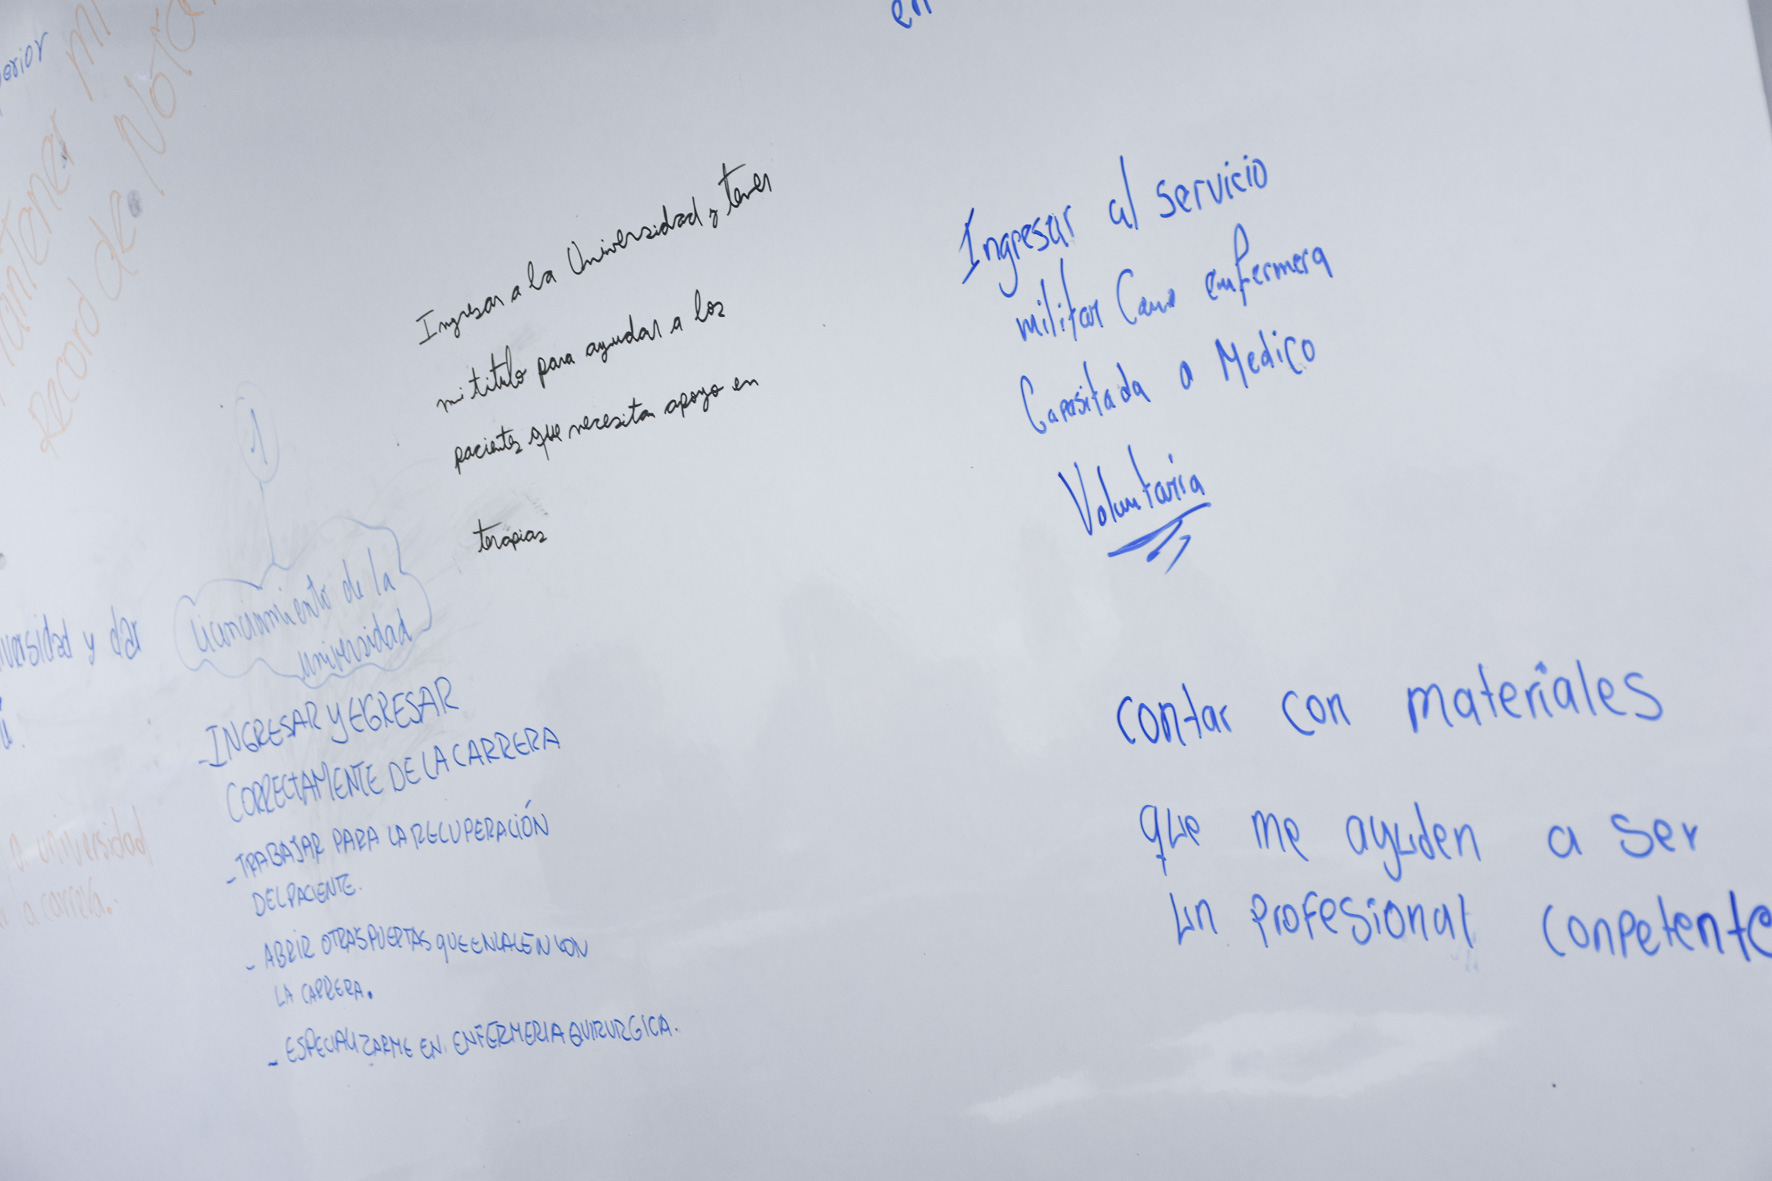 en
Ingresar a la Universidad y tener
mi titulo para ayudar a los
pacientes que necesitan apoyo en
terapias
Ingresar al servicio
militar Como enfermera
Capasitada o Medico
Voluntaria
contar con materiales
que me ayuden a ser
un profesional conpetente
1
licenciamiento de la
universidad
- INGRESAR Y EGRESAR
CORRECTAMENTE DE LA CARRERA
- TRABAJAR PARA LA RECUPERACIÓN
DEL PACIENTE.
- ABRIR OTRAS PUERTAS QUE ENLACEN CON
LA CARRERA.
- ESPECIALIZARME EN ENFERMERIA QUIRURGICA.
erior
mi
antener
Record de Nota
versidad y dar
a universidad
la carrera.